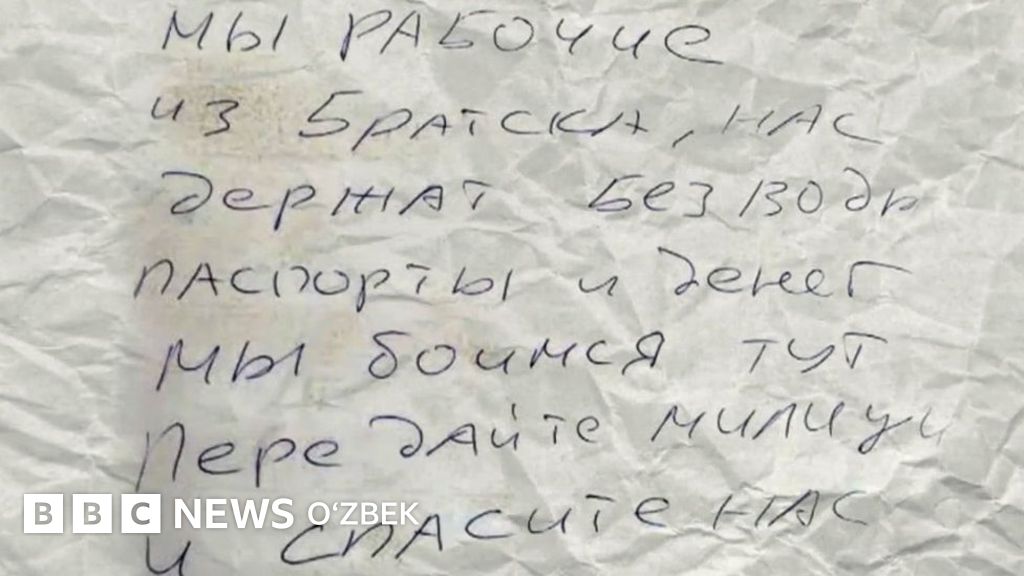 мы рабочие
из Братска, нас
держат без воды
паспорты и денег
мы боимся тут
Передайте милиции
и спасите нас
BBC NEWS O‘ZBEK